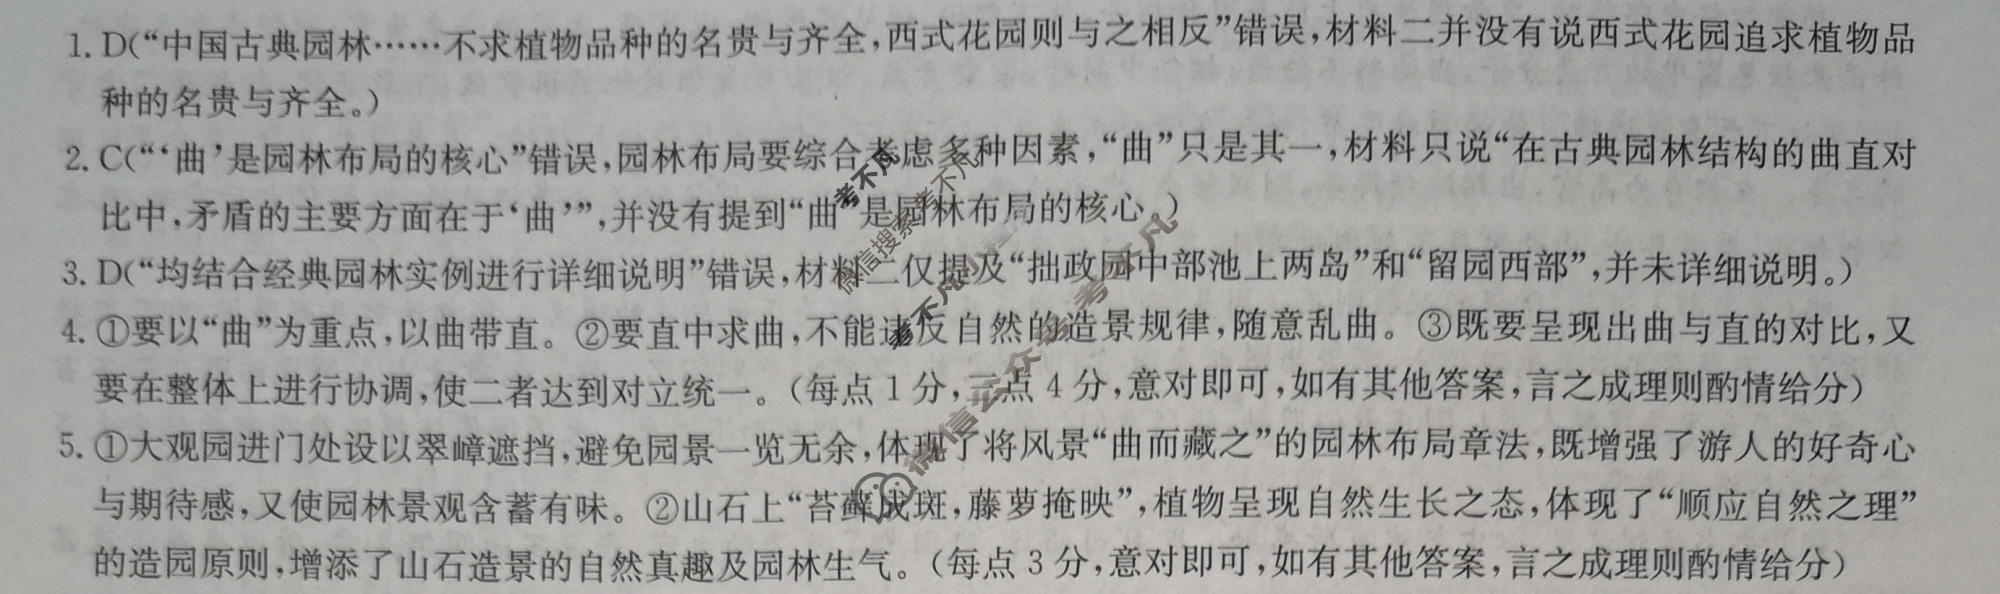 1. D(“中国古典园林……不求植物品种的名贵与齐全,西式花园则与之相反”错误,材料二并没有说西式花园追求植物品
种的名贵与齐全。)
2. C(“‘曲’是园林布局的核心”错误,园林布局要综合考虑多种因素,“曲”只是其一,材料只说“在古典园林结构的曲直对
比中,矛盾的主要方面在于‘曲’”,并没有提到“曲”是园林布局的核心。)
3. D(“均结合经典园林实例进行详细说明”错误,材料二仅提及“拙政园中部池上两岛”和“留园西部”,并未详细说明。)
4. ①要以“曲”为重点,以曲带直。②要直中求曲,不能违反自然的造景规律,随意乱曲。③既要呈现出曲与直的对比,又
要在整体上进行协调,使二者达到对立统一。(每点 1 分,三点 4 分,意对即可,如有其他答案,言之成理则酌情给分)
5. ①大观园进门处设以翠嶂遮挡,避免园景一览无余,体现了将风景“曲而藏之”的园林布局章法,既增强了游人的好奇心
与期待感,又使园林景观含蓄有味。②山石上“苔藓成斑,藤萝掩映”,植物呈现自然生长之态,体现了“顺应自然之理”
的造园原则,增添了山石造景的自然真趣及园林生气。(每点 3 分,意对即可,如有其他答案,言之成理则酌情给分)
考不凡
微信搜索考不凡
考不凡
微信公众号:考不凡